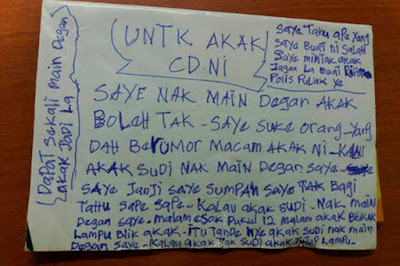 UNTK AKAK
CD.Ni
SAYE TAhu APe YANg
SAye BUAT ni SAlAh
SAye miNTAK AKAK
JAgAn LA buAT
Polis PulAk ye
SAYE NAK MAiN DegAn AKAK
BOLeH TAK - SAYe SUKe ORANg - YANg
DAH BeRUMOR MACAM AKAK Ni - KALAU
AKAK SUDi NAK MAiN DegAN SAYe -
SAYe JANJi SAYe SUMPAH SAYe TAK BAgi
TAHU SAPe SAPe - KALAU AKAK SUDi - NAK MAiN
DegAN SAYe - MALAM eSOK PUKUL 12 MALAM AKAK BUKAK
LAMPU BLiK AKAK - iTU TANDe NYe AKAK SUDi NAK MAiN
DegAN SAYe - KALAU AKAK TAK SUDi AKAK TUTUP LAMPU -
DAPAT SEKALi MAiN DegAN
AKAK JADi LA